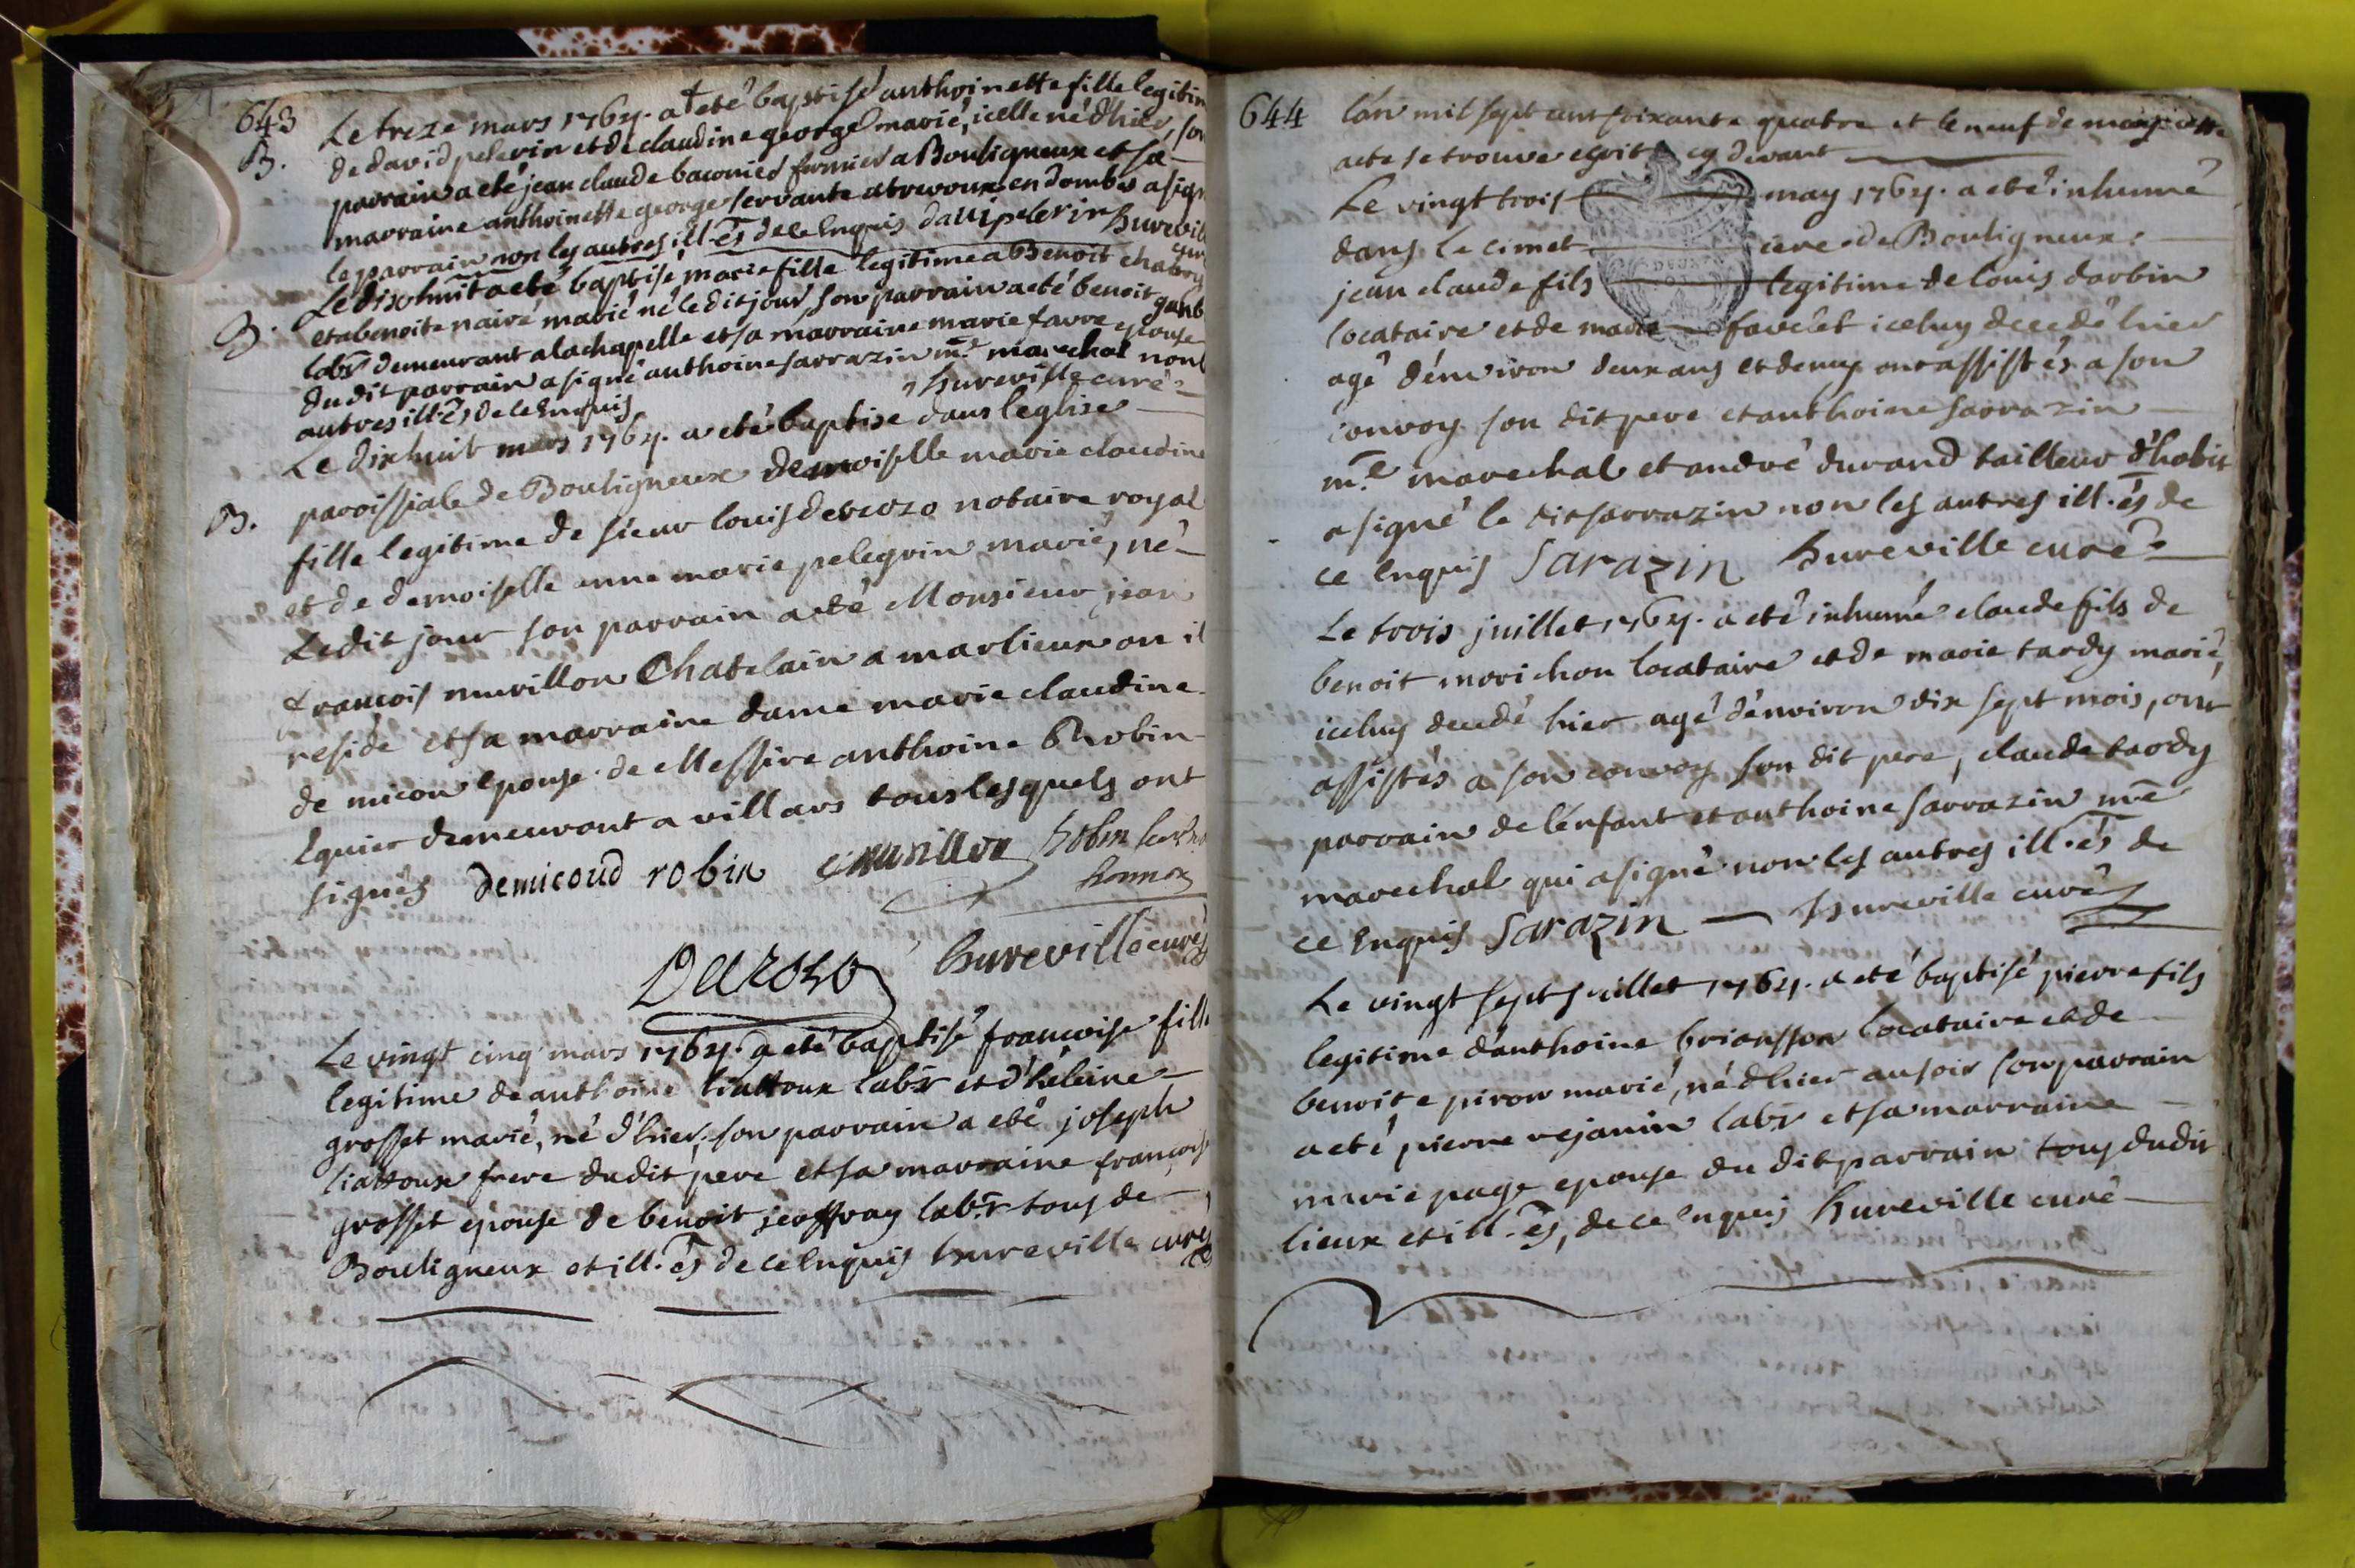 643
Le treze mars 1764. a eté baptisé anthoinette fille legitim
B.
de david pelerin et de claudine george marié, icelle né d'hier, son
parrain a eté jean claude baconier fermier a Bouligneux et sa
marraine anthoinette george servante a trevoux en dombes a signé
le parrain non les autres ill.és de ce Enquis davi pelerin hureville
curé
Le dixhuit a eté baptisé, marie fille legitime a Benoit chabry
B.
et a benoite naivé marié né ledit jour son parrain a eté benoit
labr demeurant a la chapelle et sa marraine marie favre epouse
du dit parrain a signé anthoine sarrazin m.e marechal non
autres ill.és de ce Enquis hureville curé
Le dixhuit mars 1764. a eté baptisé dans leglise
B.
paroissiale de Bouligneux demoiselle marie claudine
fille legitime de sieur louis derozo notaire royal
et de demoiselle anne marie pelegrin marié, né
Ledit jour son parrain a eté Monsieur jean
francois murillon Chatelain a marlieux ou il
reside et sa marraine dame marie claudine
de micou epouse de Messire anthoine Robin
Equier demeurant a villars tous lesquels ont
signés demicoud robin murillon Robin
Derozo hureville curé
Le vingt cinq mars 1764. a eté baptisé francoise fille
legitime de anthoine liattoux labr et d'héleine
grosset marié, né d'hier, son parrain a eté joseph
liattoux frere dudit pere et sa marraine francoise
grosset epouse de benoit jeoffray labr tous de
Bouligneux et ill.és de ce Enquis hureville curé
644
l'an mil sept cent soixante quatre et le neuf de mars cette
acte se trouve escrit cy devant
Le vingt trois may 1764. a eté inhumé
dans le cimet iere de Bouligneux
jean claude fils legitime de louis darbin
locataire et de marie favelet iceluy decedé hier
agé d'environ deux ans et demy ont assistés a son
convoy son dit pere et anthoine sarrazin
m.e marechal et andré durand tailleur d'habit
a signé le dit sarrazin non les autres ill.és de
ce Enquis Sarazin hureville curé
Le trois juillet 1764. a eté inhumé claude fils de
benoit morichon locataire et de marie tardy marié,
iceluy decedé hier agé d'environ dix sept mois, ont
assistés a son convoy son dit pere, claude tardy
parrain de l'enfant et anthoine sarrazin m.e
marechal qui a signé non les autres ill.és de
ce Enquis Sarazin hureville curé
Le vingt sept juillet 1764. a eté baptisé pierre fils
legitime d'anthoine briansson locataire et de
benoite piron marié, né d'hier au soir son parrain
a eté pierre rejanin labr et sa marraine
marie page epouse du dit parrain tous dudit
lieux et ill.és, de ce enquis hureville curé